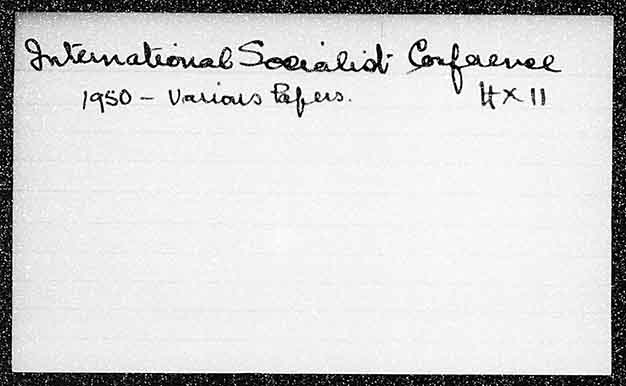 International Socialist Conference
1950 - Various Papers. HX 11